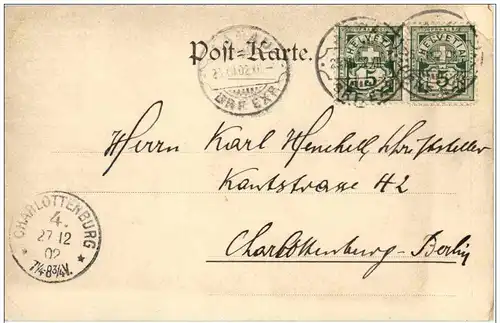 Post-Karte.
HELVETIA HELVETIA
5 5
BRF. EXP.
Herrn Karl Henckell, Schriftsteller
Kantstrasse 42
Charlottenburg-Berlin
CHARLOTTENBURG
4.
27.12
02
7¼-8¾V.